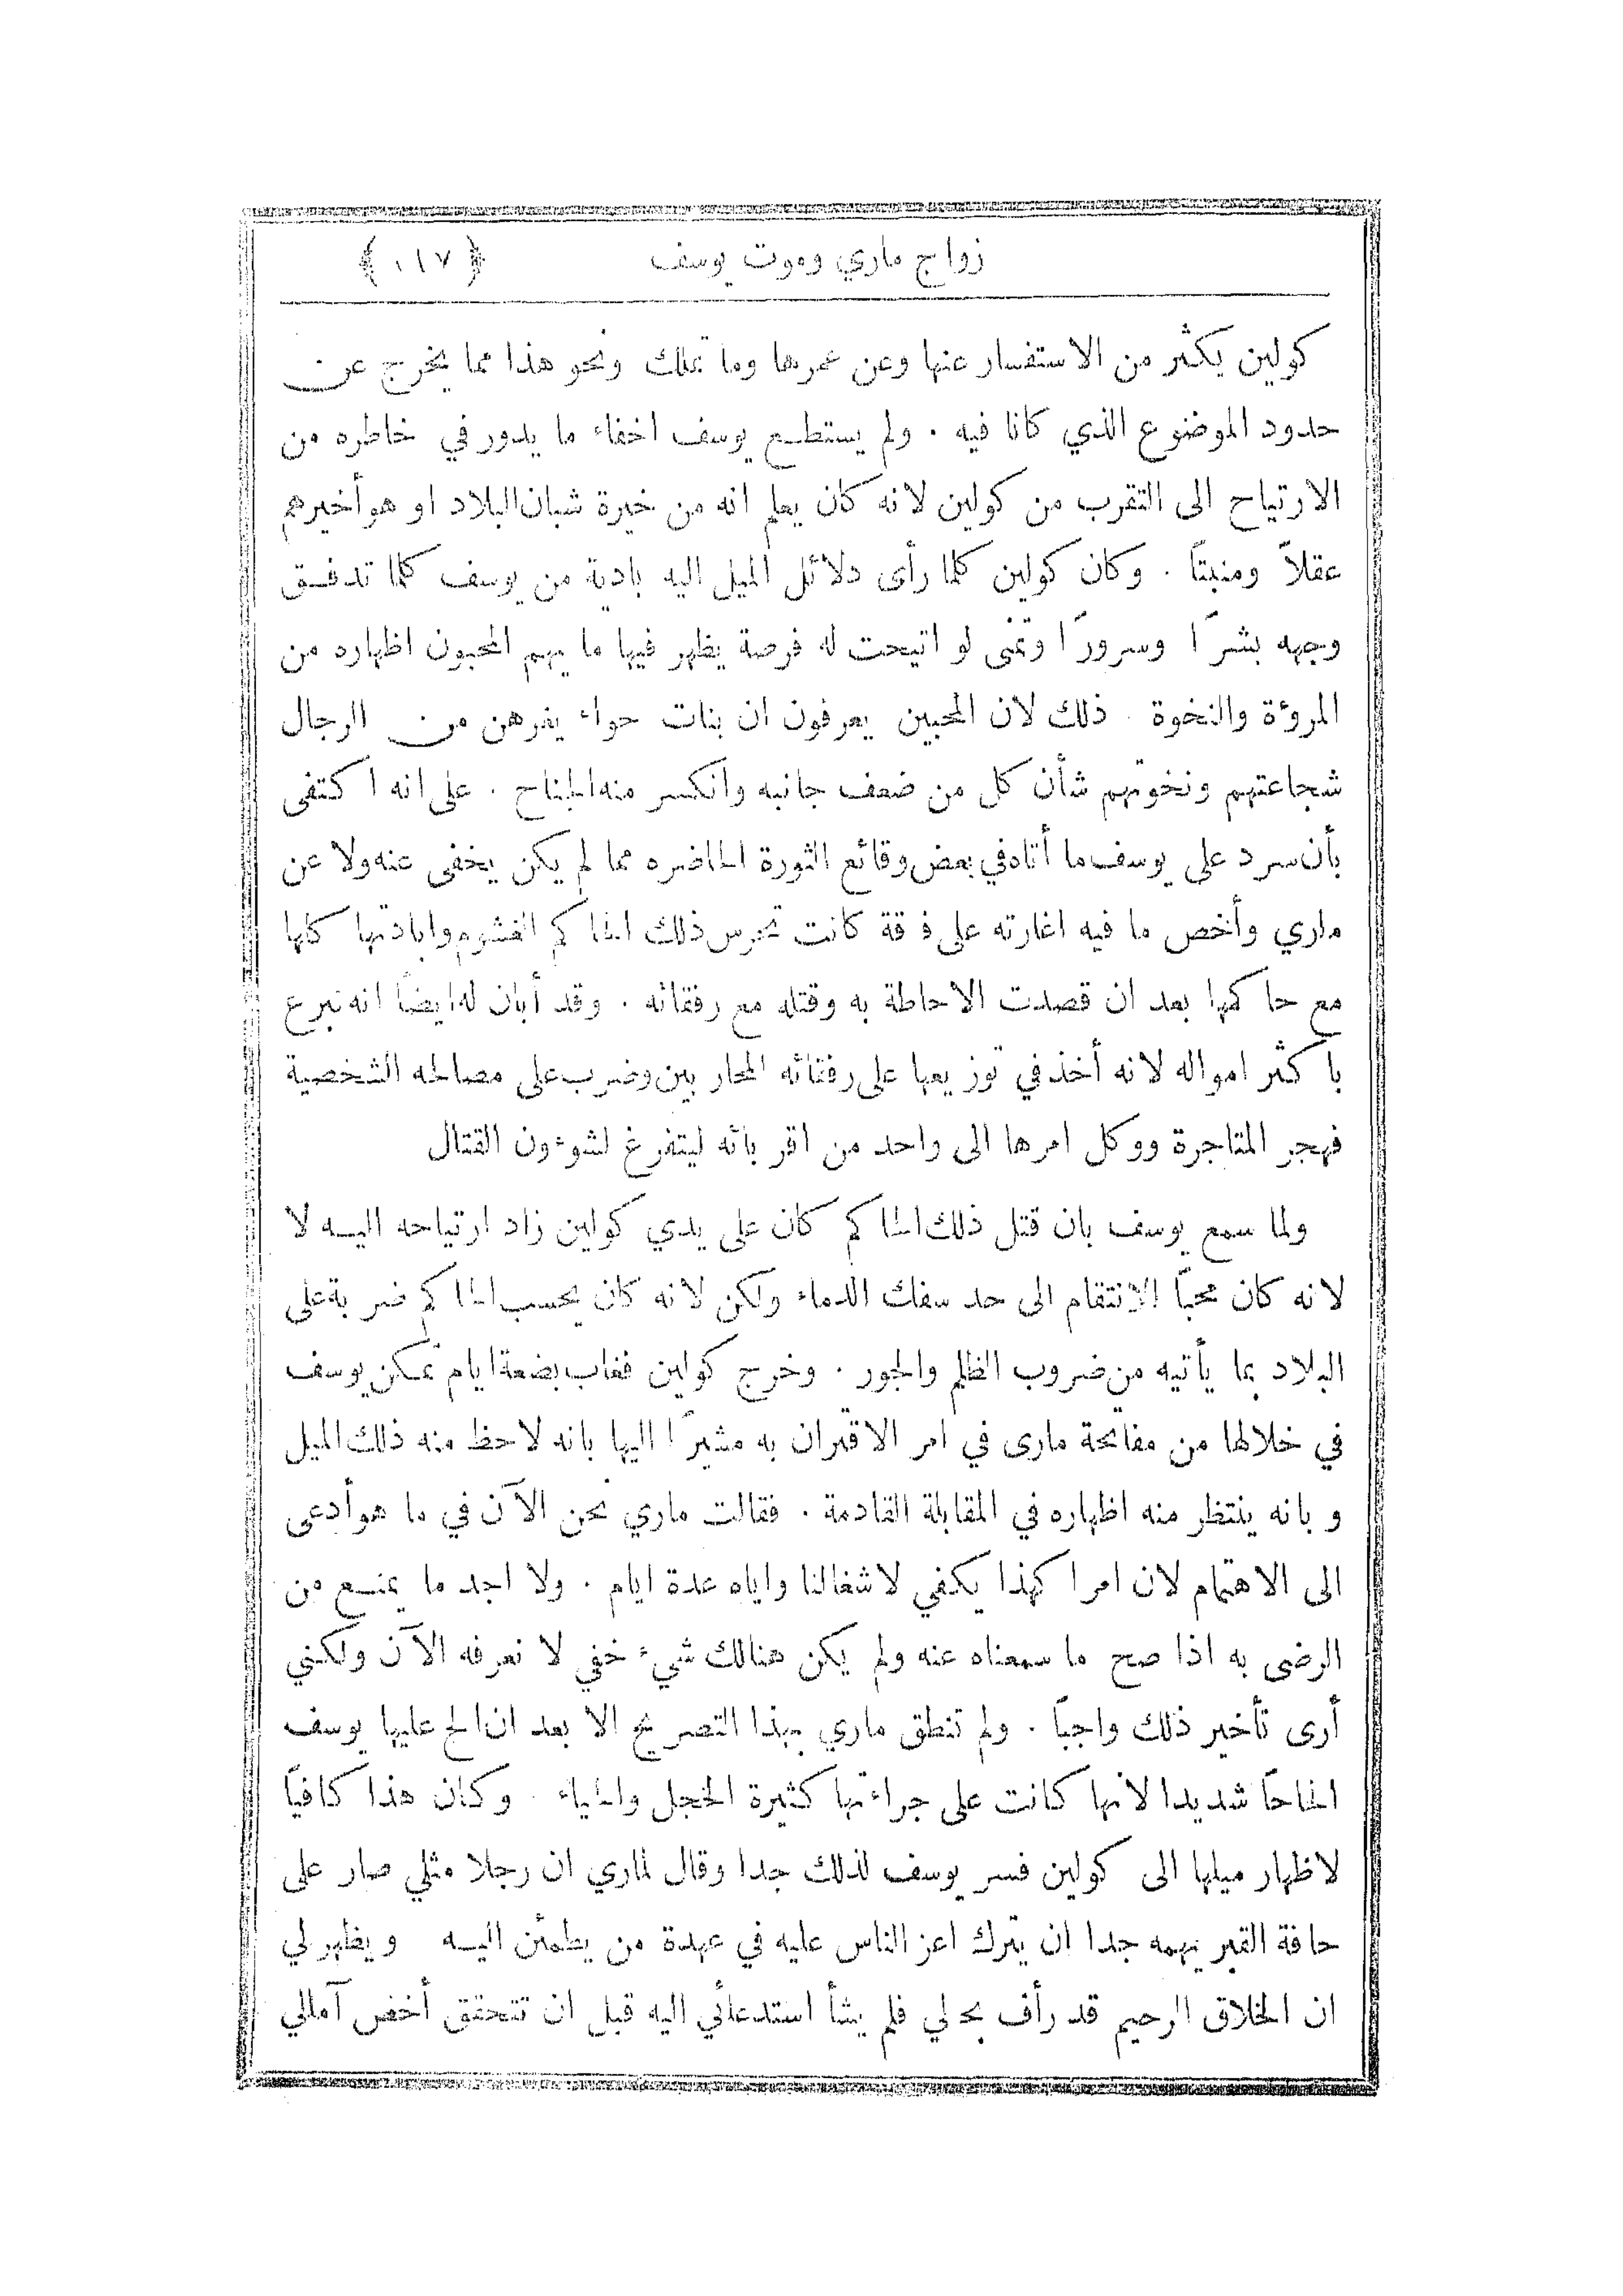 زواج ماري وموت يوسف ﴿ ١١٧ ﴾
كولين يكثر من الاستفسار عنها وعن عمرها وما تملك ونحو هذا مما يخرج عن
حدود الموضوع الذي كانا فيه . ولم يستطع يوسف اخفاء ما يدور في خاطره من
الارتياح الى التقرب من كولين لانه كان يعلم انه من خيرة شبان البلاد او هو أخيرهم
عقلاً ومنبتاً . وكان كولين كلما رأى دلائل الميل اليه بادية من يوسف كلما تدفق
وجهه بشرًا وسرورًا وتمنى لو اتيحت له فرصة يظهر فيها ما يهم المحبون اظهاره من
المروءة والنخوة . ذلك لان المحبين يعرفون ان بنات حواء يغرهن من الرجال
شجاعتهم ونخوتهم شأن كل من ضعف جانبه وانكسر منه الجناح . على انه اكتفى
بأن سرد على يوسف ما أتاه في بعض وقائع الثورة الحاضره مما لم يكن يخفى عنه ولا عن
ماري وأخص ما فيه اغارته على فرقة كانت تحرس ذلك الحاكم الغشوم وابادتها كلها
مع حاكمها بعد ان قصدت الاحاطة به وقتله مع رفقائه . وقد أبان له ايضاً انه تبرع
باكثر امواله لانه أخذ في توزيعها على رفقائه المحاربين وضرب على مصالحه الشخصية
فهجر المتاجرة ووكل امرها الى واحد من اقربائه ليتفرغ لشوءون القتال
ولما سمع يوسف بان قتل ذلك الحاكم كان على يدي كولين زاد ارتياحه اليه لا
لانه كان محباً الانتقام الى حد سفك الدماء ولكن لانه كان يحسب الحاكم ضربة على
البلاد بما يأتيه من ضروب الظلم والجور . وخرج كولين فغاب بضعة ايام تمكن يوسف
في خلالها من مفاتحة مارى في امر الاقتران به مشيرًا اليها بانه لاحظ منه ذلك الميل
وبانه ينتظر منه اظهاره في المقابلة القادمة . فقالت ماري نحن الآن في ما هو أدعى
الى الاهتمام لان امرا كهذا يكفي لاشغالنا واياه عدة ايام . ولا اجد ما يمنع من
الرضى به اذا صح ما سمعناه عنه ولم يكن هنالك شيء خفي لا نعرفه الآن ولكنني
أرى تأخير ذلك واجباً . ولم تنطق ماري بهذا التصريح الا بعد ان الح عليها يوسف
الحاحاً شديدا لانها كانت على جراءتها كثيرة الخجل والحياء . وكان هذا كافياً
لاظهار ميلها الى كولين فسر يوسف لذلك جدا وقال لماري ان رجلا مثلي صار على
حافة القبر يهمه جدا ان يترك اعز الناس عليه في عهدة من يطمئن اليه ويظهر لي
ان الخلاق الرحيم قد رأف بحالي فلم يشأ استدعائي اليه قبل ان تتحقق أخص آمالي